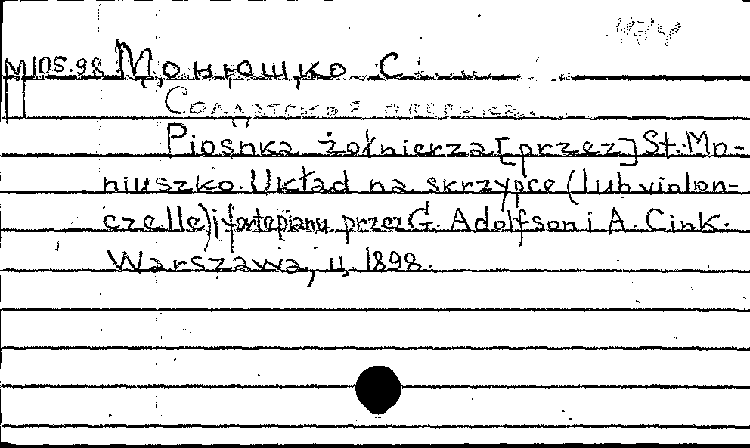 М 105.98 Монюшко С.
Солдатская песенка.
Piosnka żołnierza [przez] St. Mo-
niuszko. Układ na skrzypce (lub violon-
czelle) i fortepianu przez G. Adolfson i A. Cink.
Warszawa, ц. 1898.